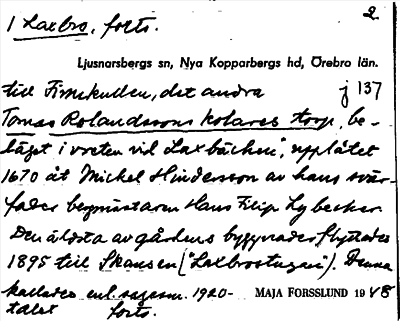 1 Laxbro, forts. 2.
Ljusnarsbergs sn, Nya Kopparbergs hd, Örebro län.
till Finnkullen, det andra j 137
Tomas Rolandssons kolares torp, be-
läget i vreten vid Laxbäcken", upplåtet
1670 åt Mickel Hindersson av hans svär-
fader bergmästaren Hans Filip Lybecker.
Den äldsta av gårdens byggnader flyttades
1895 till Skansen ("Laxbrostugan"). Denna
kallades enl. sagesm. 1920- MAJA FORSSLUND 1948
talet forts.